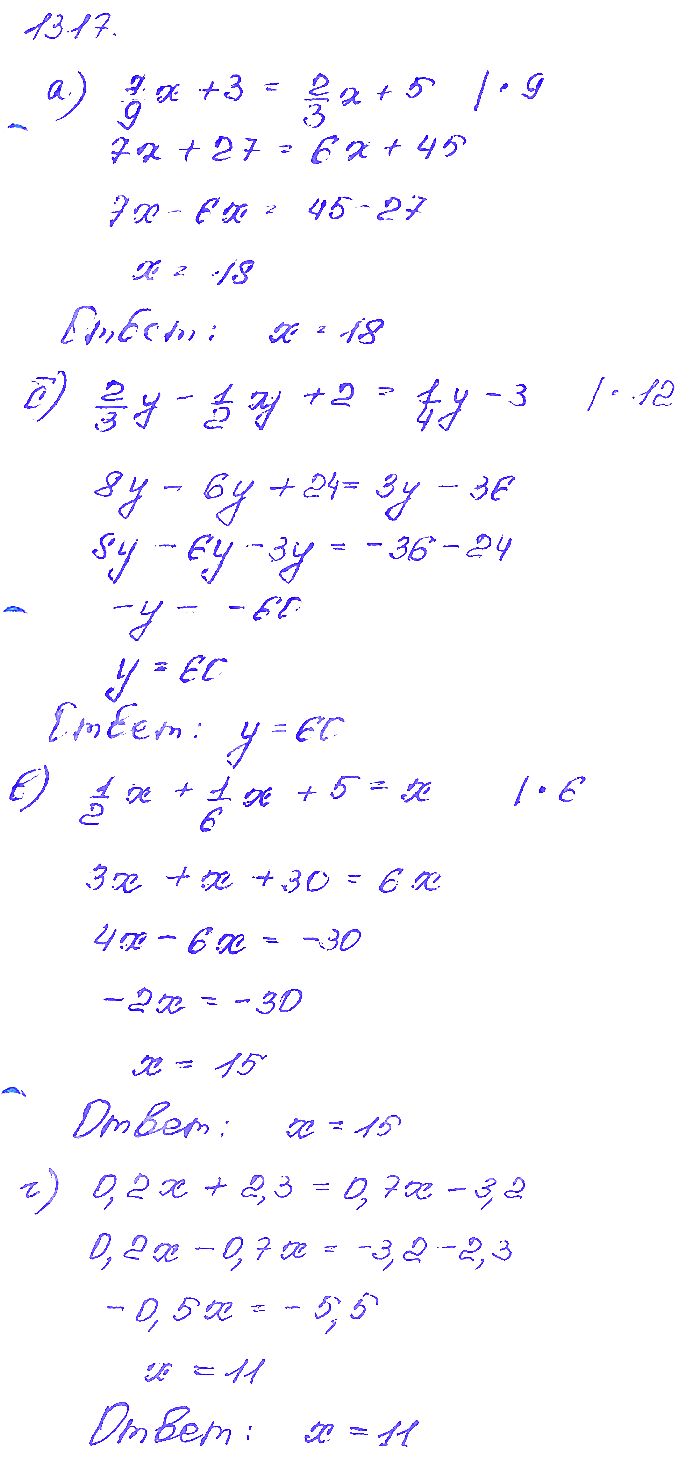 1317.
а) 7/9 x + 3 = 2/3 x + 5 | · 9
7x + 27 = 6x + 45
7x - 6x = 45 - 27
x = 18
Ответ: x = 18
б) 2/3 y - 1/2 y + 2 = 1/4 y - 3 | · 12
8y - 6y + 24 = 3y - 36
8y - 6y - 3y = -36 - 24
-y = -60
y = 60
Ответ: y = 60
в) 1/2 x + 1/6 x + 5 = x | · 6
3x + x + 30 = 6x
4x - 6x = -30
-2x = -30
x = 15
Ответ: x = 15
г) 0,2x + 2,3 = 0,7x - 3,2
0,2x - 0,7x = -3,2 - 2,3
-0,5x = -5,5
x = 11
Ответ: x = 11